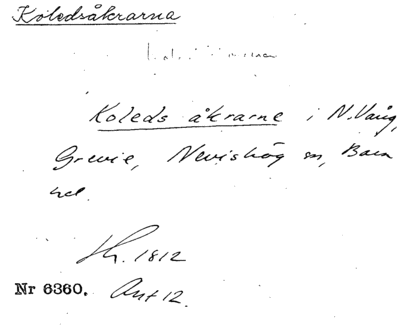 Koledsåkrarna
Koleds åkrarne i N.Vång,
Grevie, Nevishög sn, Bara
hd.
1812
Nr 6360. Ant 12.